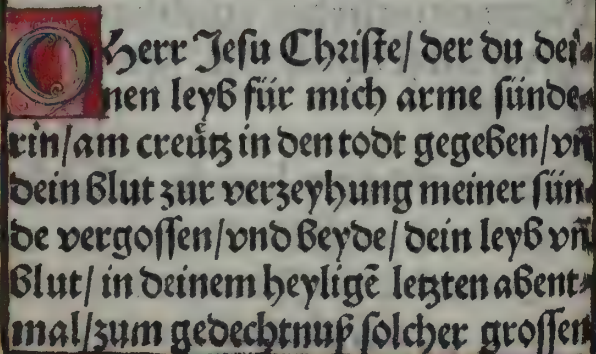 O Herr Jesu Christe/ der du dei⸗
nen leyb für mich arme sünde⸗
rin/am creütz in den todt gegeben/vñ
dein blut zur verzeyhung meiner sün⸗
de vergossen/vnd beyde/ dein leyb vñ
blut/ in deinem heyligẽ letzten abent⸗
mal/zum gedechtnuß solcher grossen